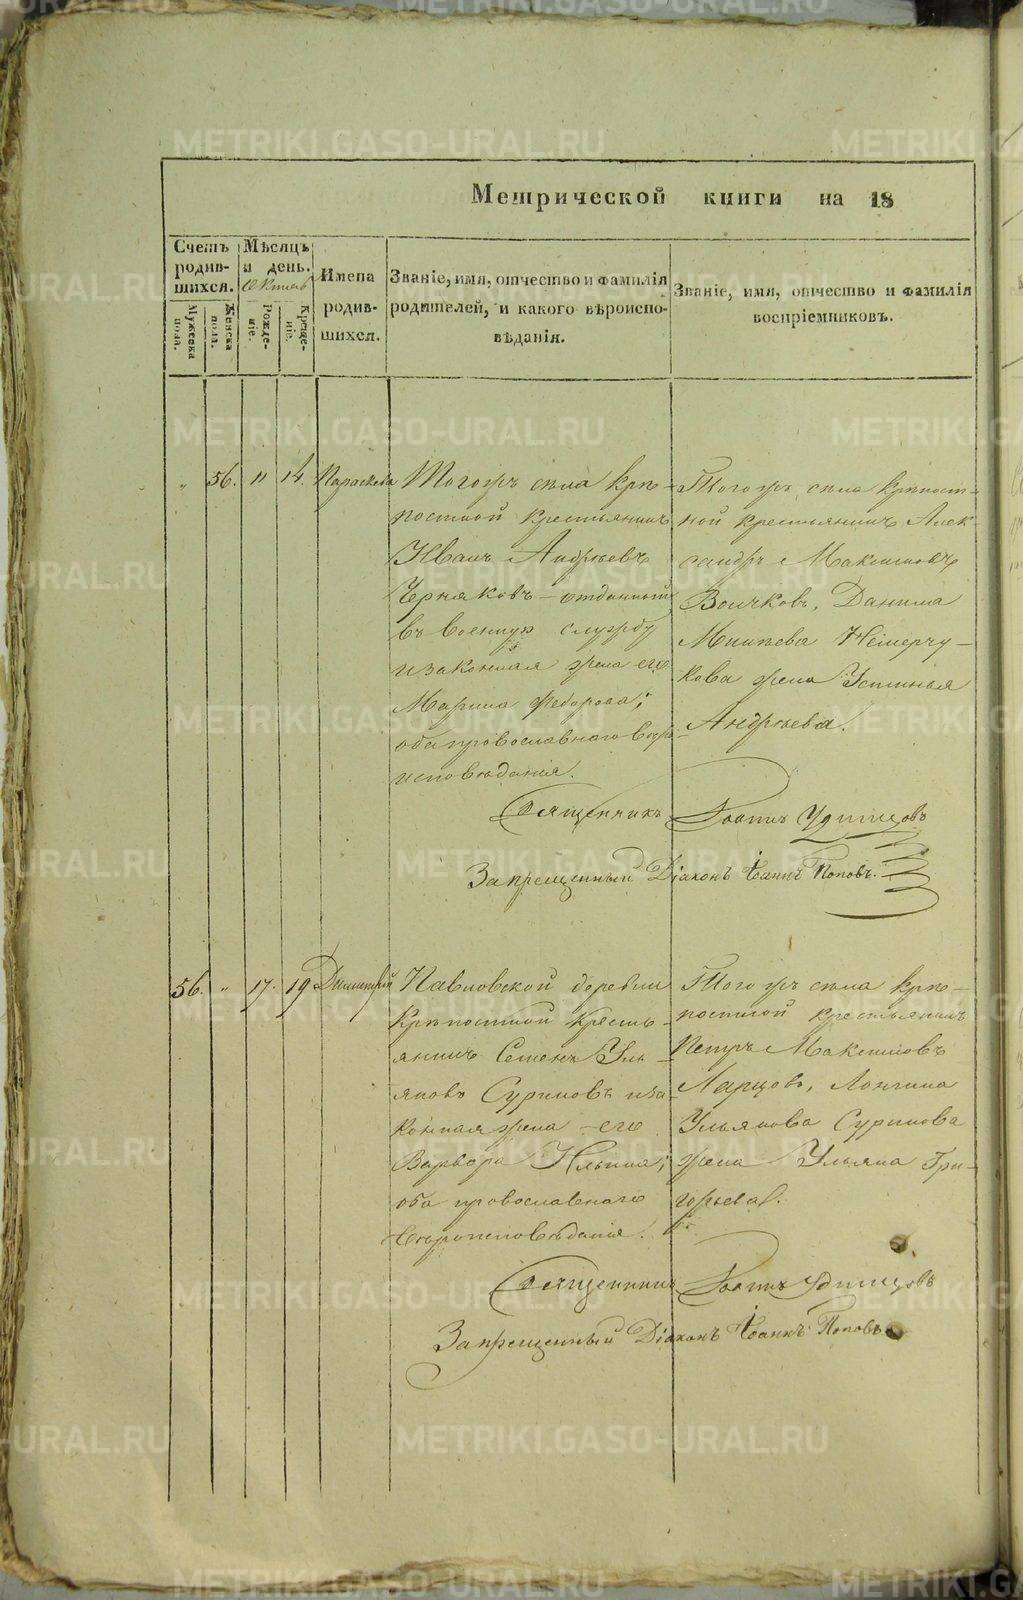 Метрической книги на 18
Счетъ родив-шихся.
Мѣсяцъ и день.
Октяб
Имена родив-шихся.
Званіе, имя, отчество и фамилія родителей, и какого вѣроиспо-вѣданія.
Званіе, имя, отчество и фамилія воспріемниковъ.
Мужеска пола.
Женска пола.
Рожде-ніе.
Креще-ніе.
„ 56. 11 14. Параскева
Тогожъ села Крѣ-
постной крестьянинъ
Иванъ Андрѣевъ
Черняковъ – отданный
въ военную службу
и законная жена его
Марина Федорова;
оба православнаго вѣро-
исповѣданія.
Тогожъ села Крѣпост-
ной крестьянинъ Алек-
сандръ Максимовъ
Волчковъ, Данила
Минѣева Немерчу-
кова жена Устинья
Андрѣева.
Священникъ Іоаннъ Удинцовъ
Запрещенный Діаконъ Іоаннъ Поповъ.
56. „ 17. 19 Димитрій
Павловской деревни
Крѣпостной Кресть-
янинъ Семенъ Уль-
яновъ Суриновъ и за-
конная жена его
Варвора Ильина;
оба православнаго
вѣроисповѣданія.
Тогожъ села Крѣ-
постной крестьянинъ
Петръ Максимовъ
Ларцовъ, Лонгина
Ульянова Суринова
жена Ульяна Гри-
горьева.
Священникъ Іоаннъ Удинцовъ
Запрещенный Діаконъ Іоаннъ Поповъ
METRIKI.GASO-URAL.RU